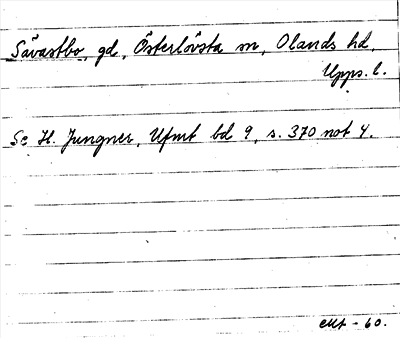 Sävastbo, gd, Österlövsta sn, Olands hd
Upps. l.
Se H. Jungner, Ufmt bd 9, s. 370 not 4.
-60.